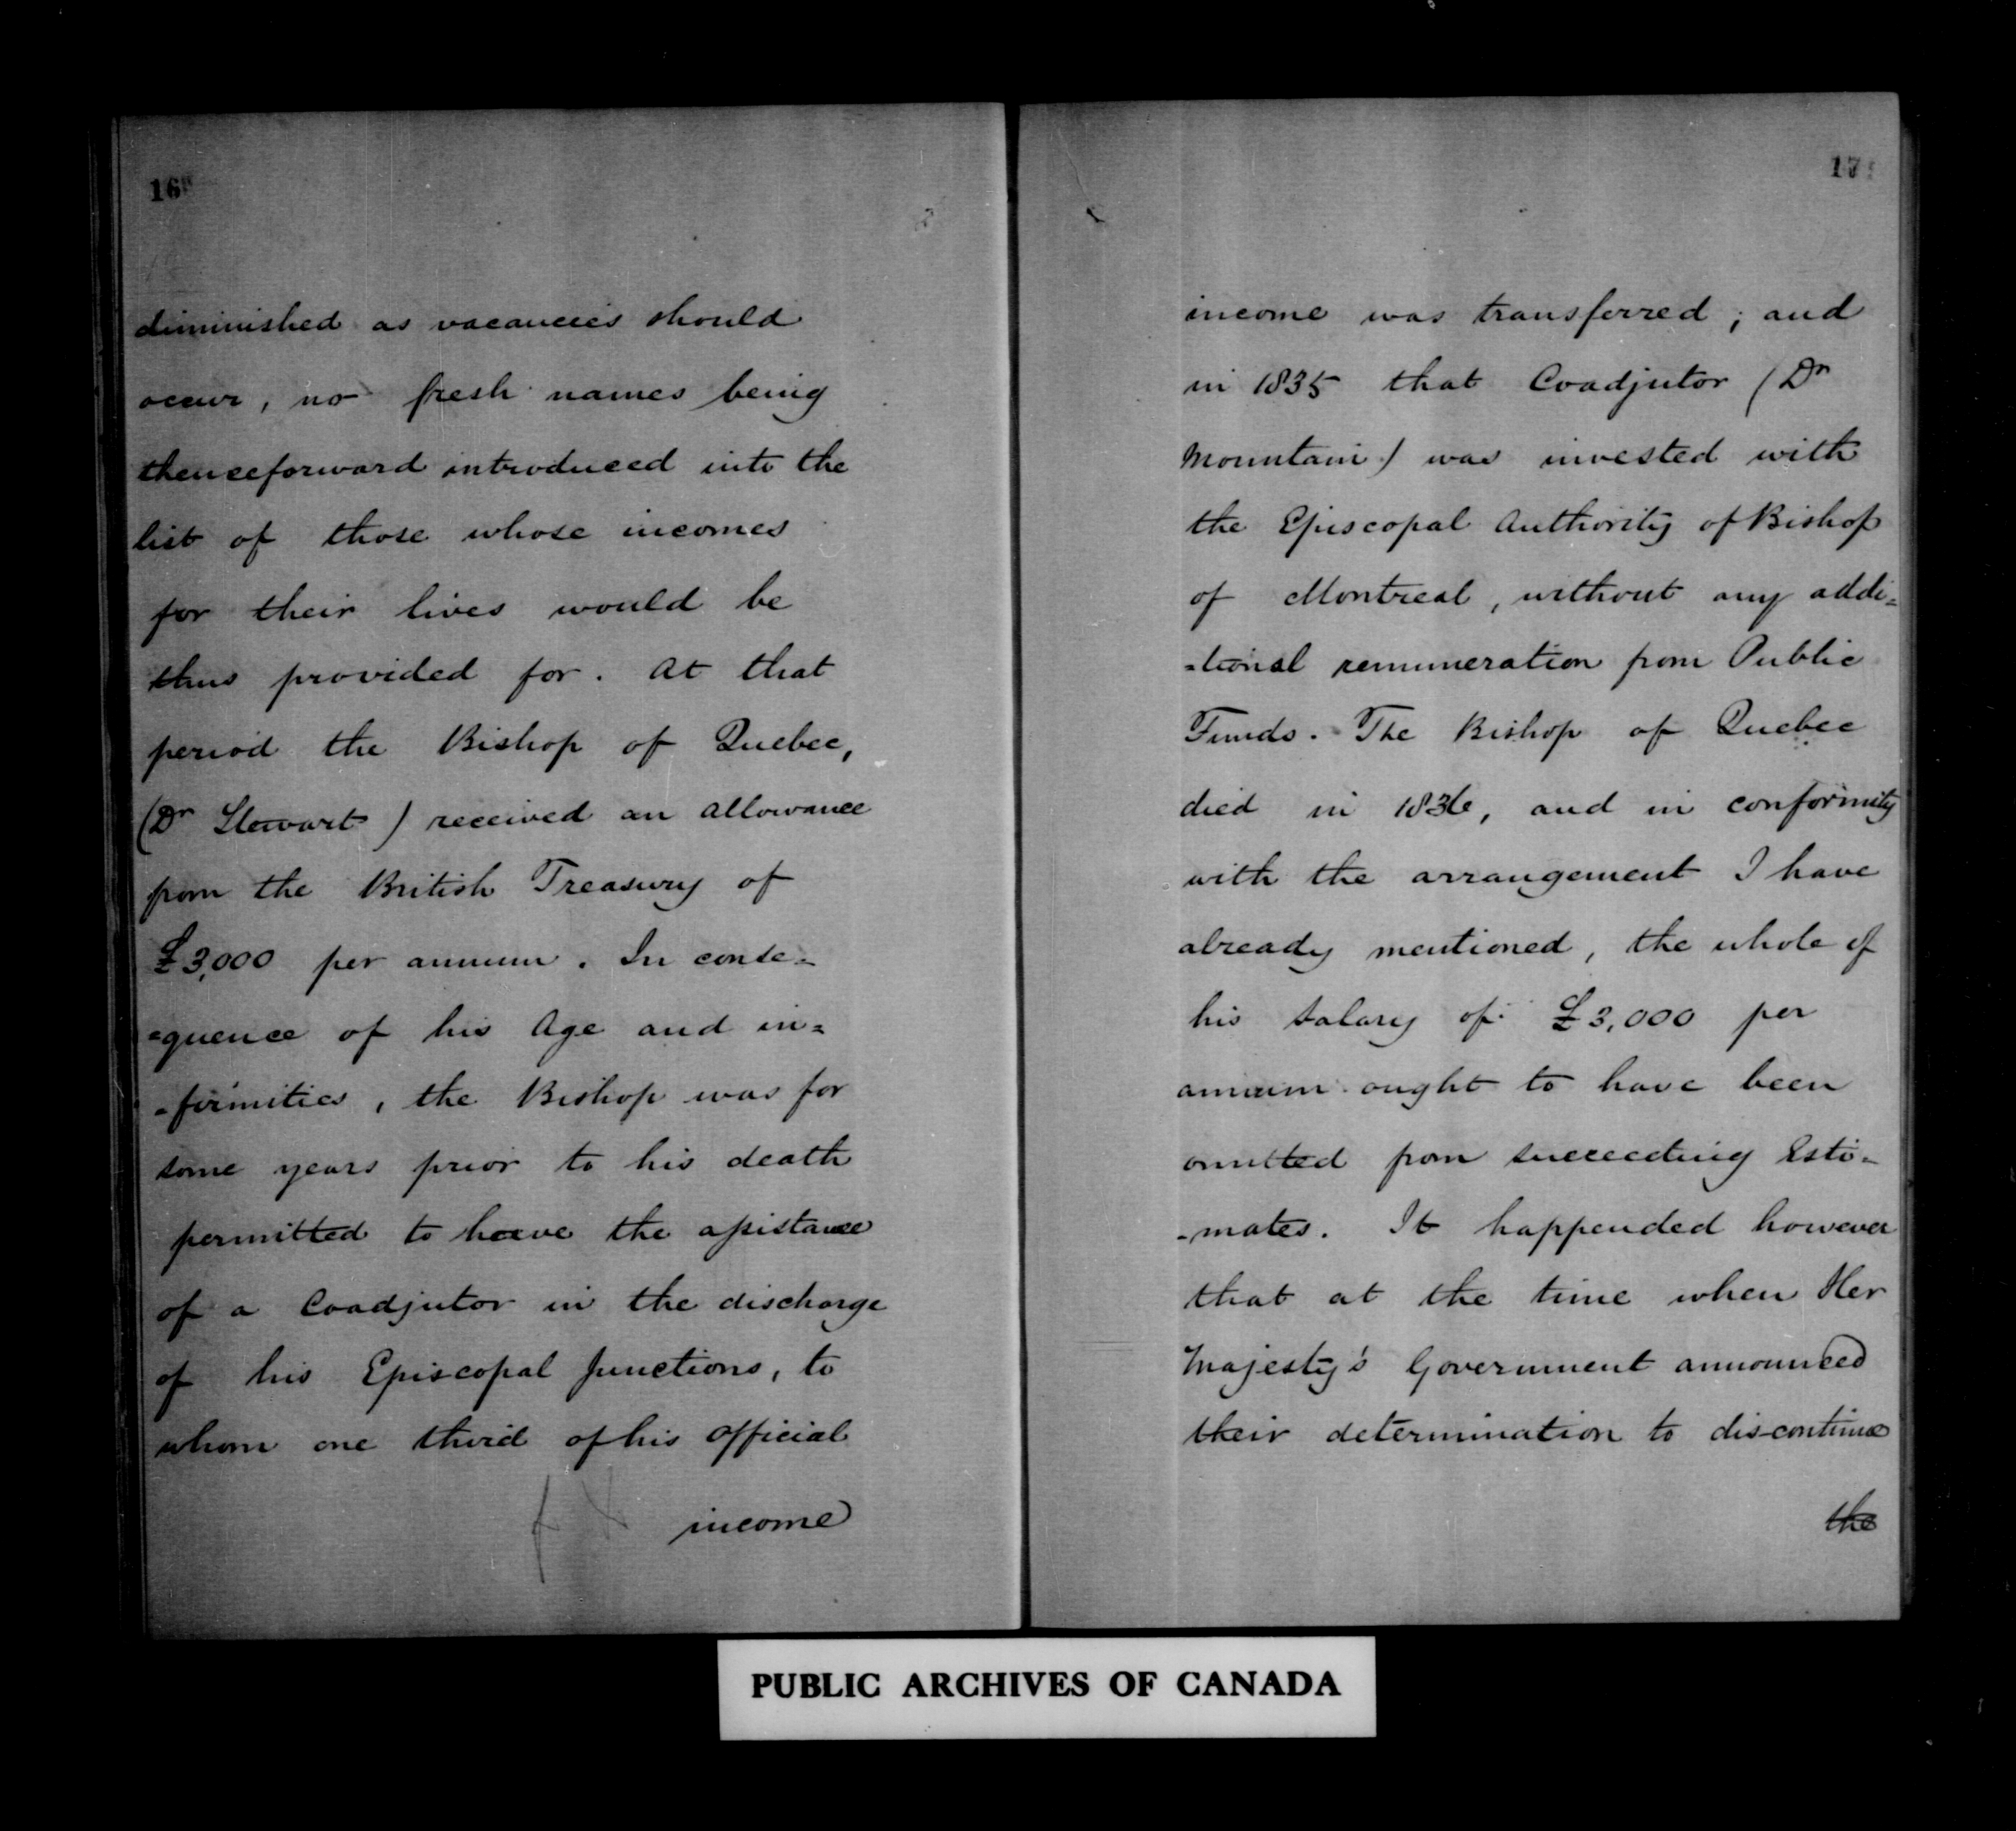 16
diminished as vacancies should
occur, no fresh names being
thenceforward introduced into the
list of those whose incomes
for their lives would be
thus provided for. At that
period the Bishop of Quebec,
(Dr Stewart) received an allowance
from the British Treasury of
£3,000 per annum. In conse=
=quence of his Age and in=
-firmities, the Bishop was for
some years prior to his death
permitted to have the assistance
of a Coadjutor in the discharge
of his Episcopal functions, to
whom one third of his official
income
17
income was transferred; and
in 1835 that Coadjutor (Dr
Mountain) was invested with
the Episcopal Authority of Bishop
of Montreal, without any addi=
=tional remuneration from Public
Funds. The Bishop of Quebec
died in 1836, and in conformity
with the arrangement I have
already mentioned, the whole of
his salary of £3,000 per
annum ought to have been
omitted from succeeding Esti-
-mates. It happended however
that at the time when Her
Majesty's Government announced
their determination to dis-continue
the
PUBLIC ARCHIVES OF CANADA